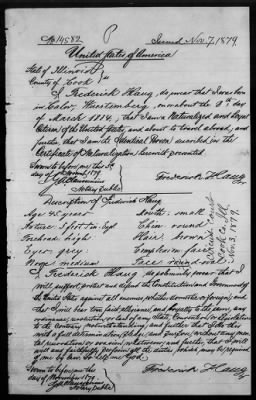 No 14582 Issued Nov. 7, 1879
United States of America
State of Illinois
County of Cook } ss
I Frederick Haug, do swear that I was born
in Calw, Wurtemberg, on or about the 8th day
of March 1834, that I am a Naturalized and loyal
Citizen of the United States, and about to travel abroad, and
further, that I am the Identical Person described in the
Certificate of Naturalization herewith presented.
Sworn to before me this 3d
day of 1879
Notary Public
Frederick Haug
Description of Frederick Haug
Age: 45 years Mouth: small
Stature: 5 foot in. Chin round
Forehead: high Hair: brown
Eyes: grey Complexion: fresh
Nose: medium Face: round
Cook Co. Ill.
Nov. 3, 1879.
I Frederick Haug do solemnly swear that I
will support, protect and defend the Constitution and Government of
the United States against all enemies, whether domestic or foreign; and
that I will bear true faith, allegiance, and loyalty to the same, any
ordinance, resolution, or law of any State, Convention or Legislature
to the contrary notwithstanding; and further that I do this
with a full determination, pledge, and purpose, without any men-
tal reservation or evasion whatsoever; and further, that I will
well and faithfully perform all the duties which may be required
of me by law. So help me God.
Sworn to before me this
day of 1879
Notary Public
Frederick Haug